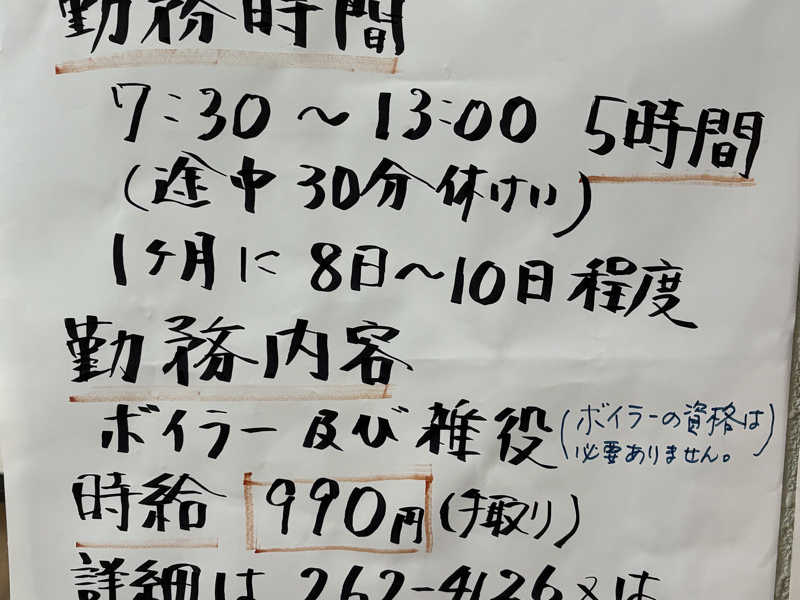 勤務時間
7:30～13:00 5時間
(途中30分休けい)
1ヶ月に8日～10日程度
勤務内容
ボイラー及び雑役(ボイラーの資格は
必要ありません。)
時給 990円(手取り)
詳細は 262-4126又は